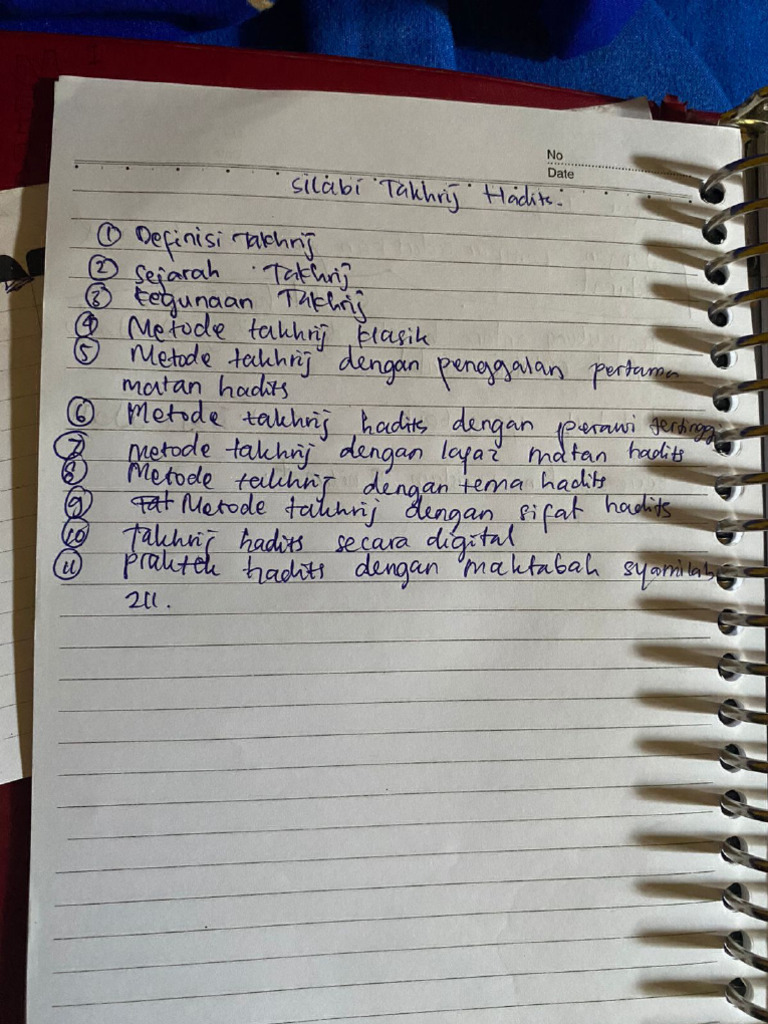 No
Date
Silabi Takhrij Hadits.
① Definisi Takhrij
② Sejarah Takhrij
③ Kegunaan Takhrij
④ Metode takhrij klasik
⑤ Metode takhrij dengan penggalan pertama
matan hadits
⑥ Metode takhrij hadits dengan perawi tertinggi
⑦ Metode takhrij dengan lafaz matan hadits
⑧ Metode takhrij dengan tema hadits
⑨ Metode takhrij dengan sifat hadits
⑩ Takhrij hadits secara digital
⑪ praktek hadits dengan maktabah syamilah
2ll.